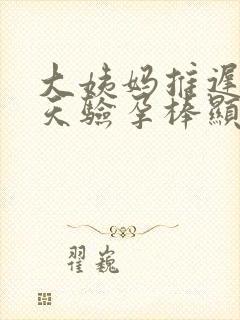 大姨妈推迟
天验孕棒显
翟巍